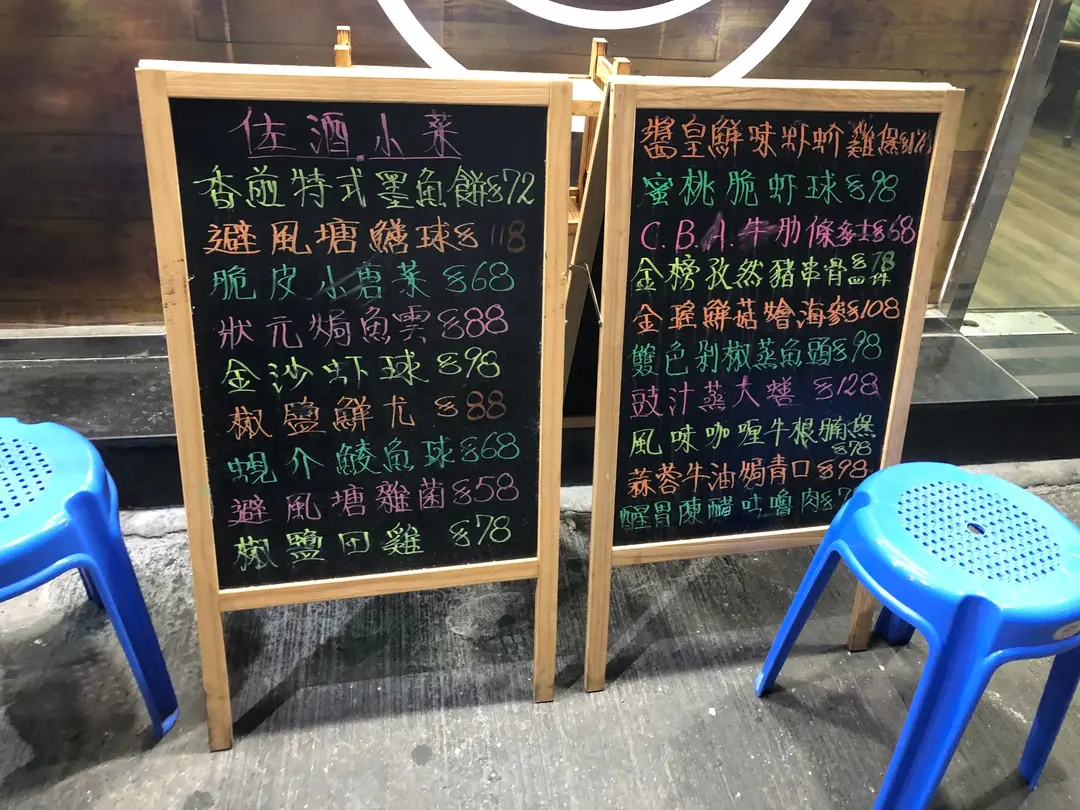 佐酒小菜
香煎特式墨魚餅$72
避風塘鱔球$118
脆皮小唐菜 $68
狀元焗魚雲$88
金沙虾球 $98
椒鹽鮮尤 $88
蜆介鯪魚球$68
避風塘雜菌$58
椒鹽田雞 $78
醬皇鮮味虾蚧雞煲
蜜桃脆虾球$98
C.B.A.牛肋條多士$68
金榜孜然豬串骨$78
四件
金瑤鮮菇燴海參$108
雙色剁椒蒸魚頭$98
豉汁蒸大鱔 $128
風味咖喱牛根腩煲
$78
蒜蓉牛油焗青口 $98
醒胃陳醋咕嚕肉